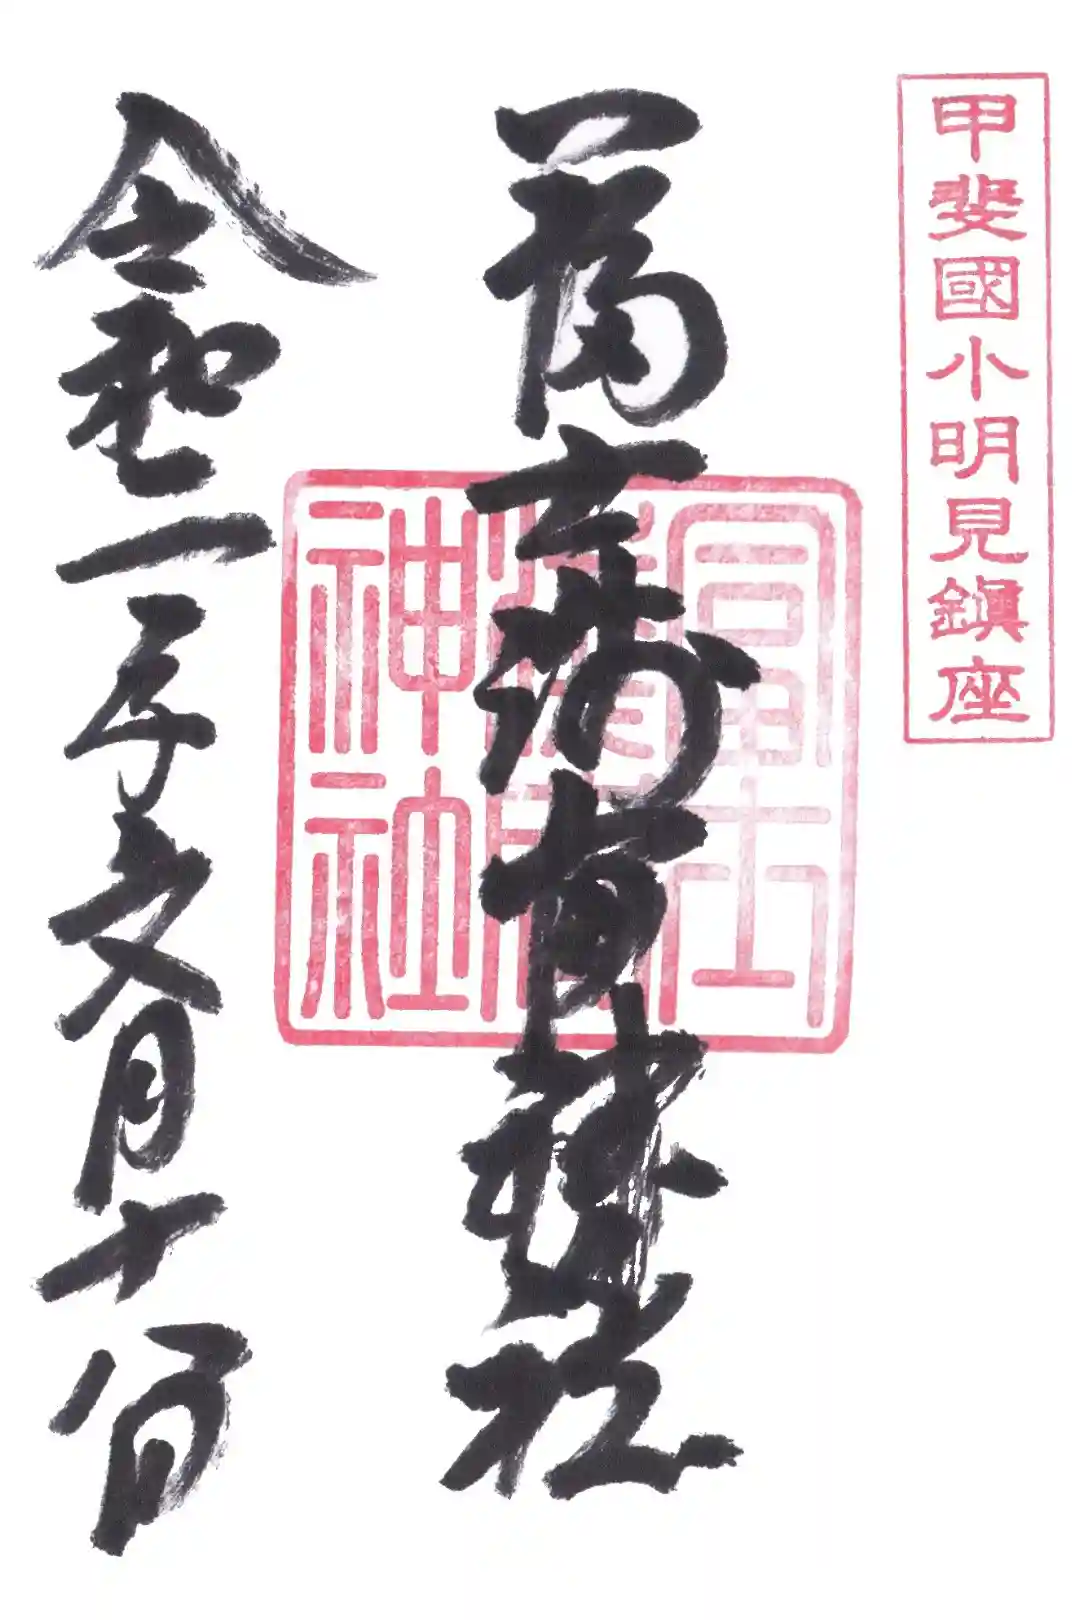 甲斐國小明見鎮座
冨士浅間神社
冨士
淺間
神社
令和二年文月十八日